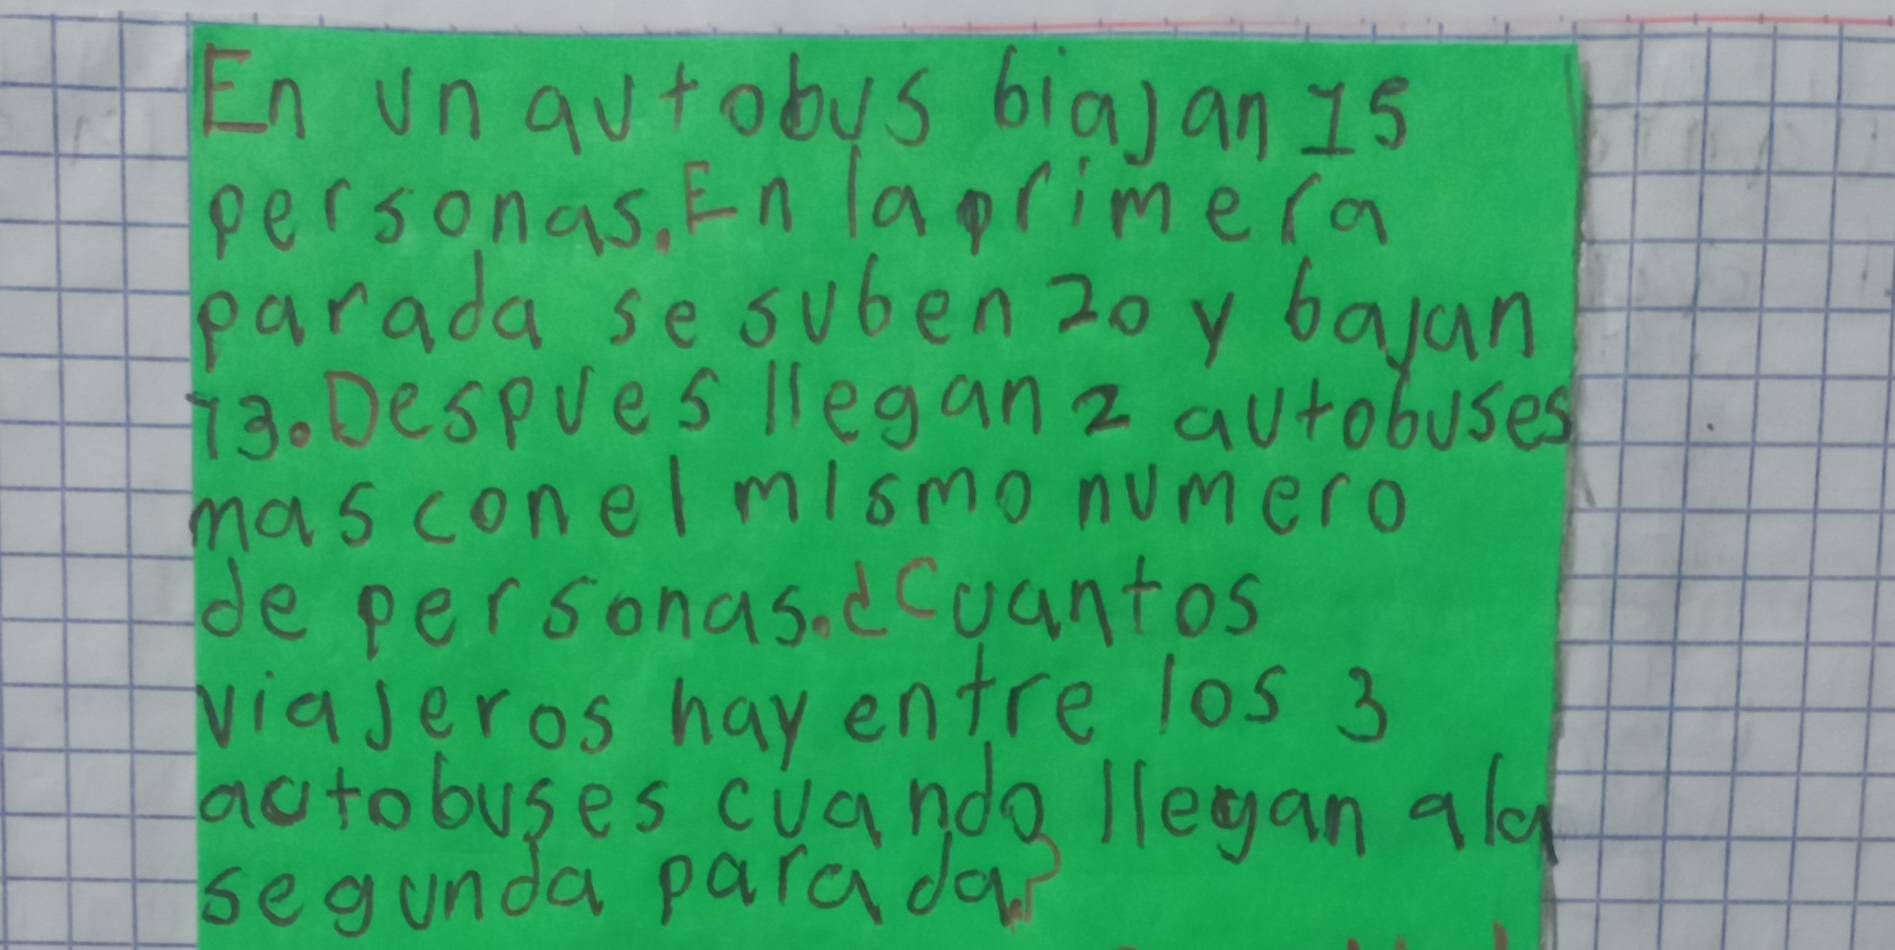 En un autobus biajan 15
personas. En la primera
parada se suben 20 y bajan
13. Despues llegan 2 autobuses
mas con el mismo numero
de personas. ¿Cuantos
viajeros hay entre los 3
autobuses cuando llegan a la
segunda parada?